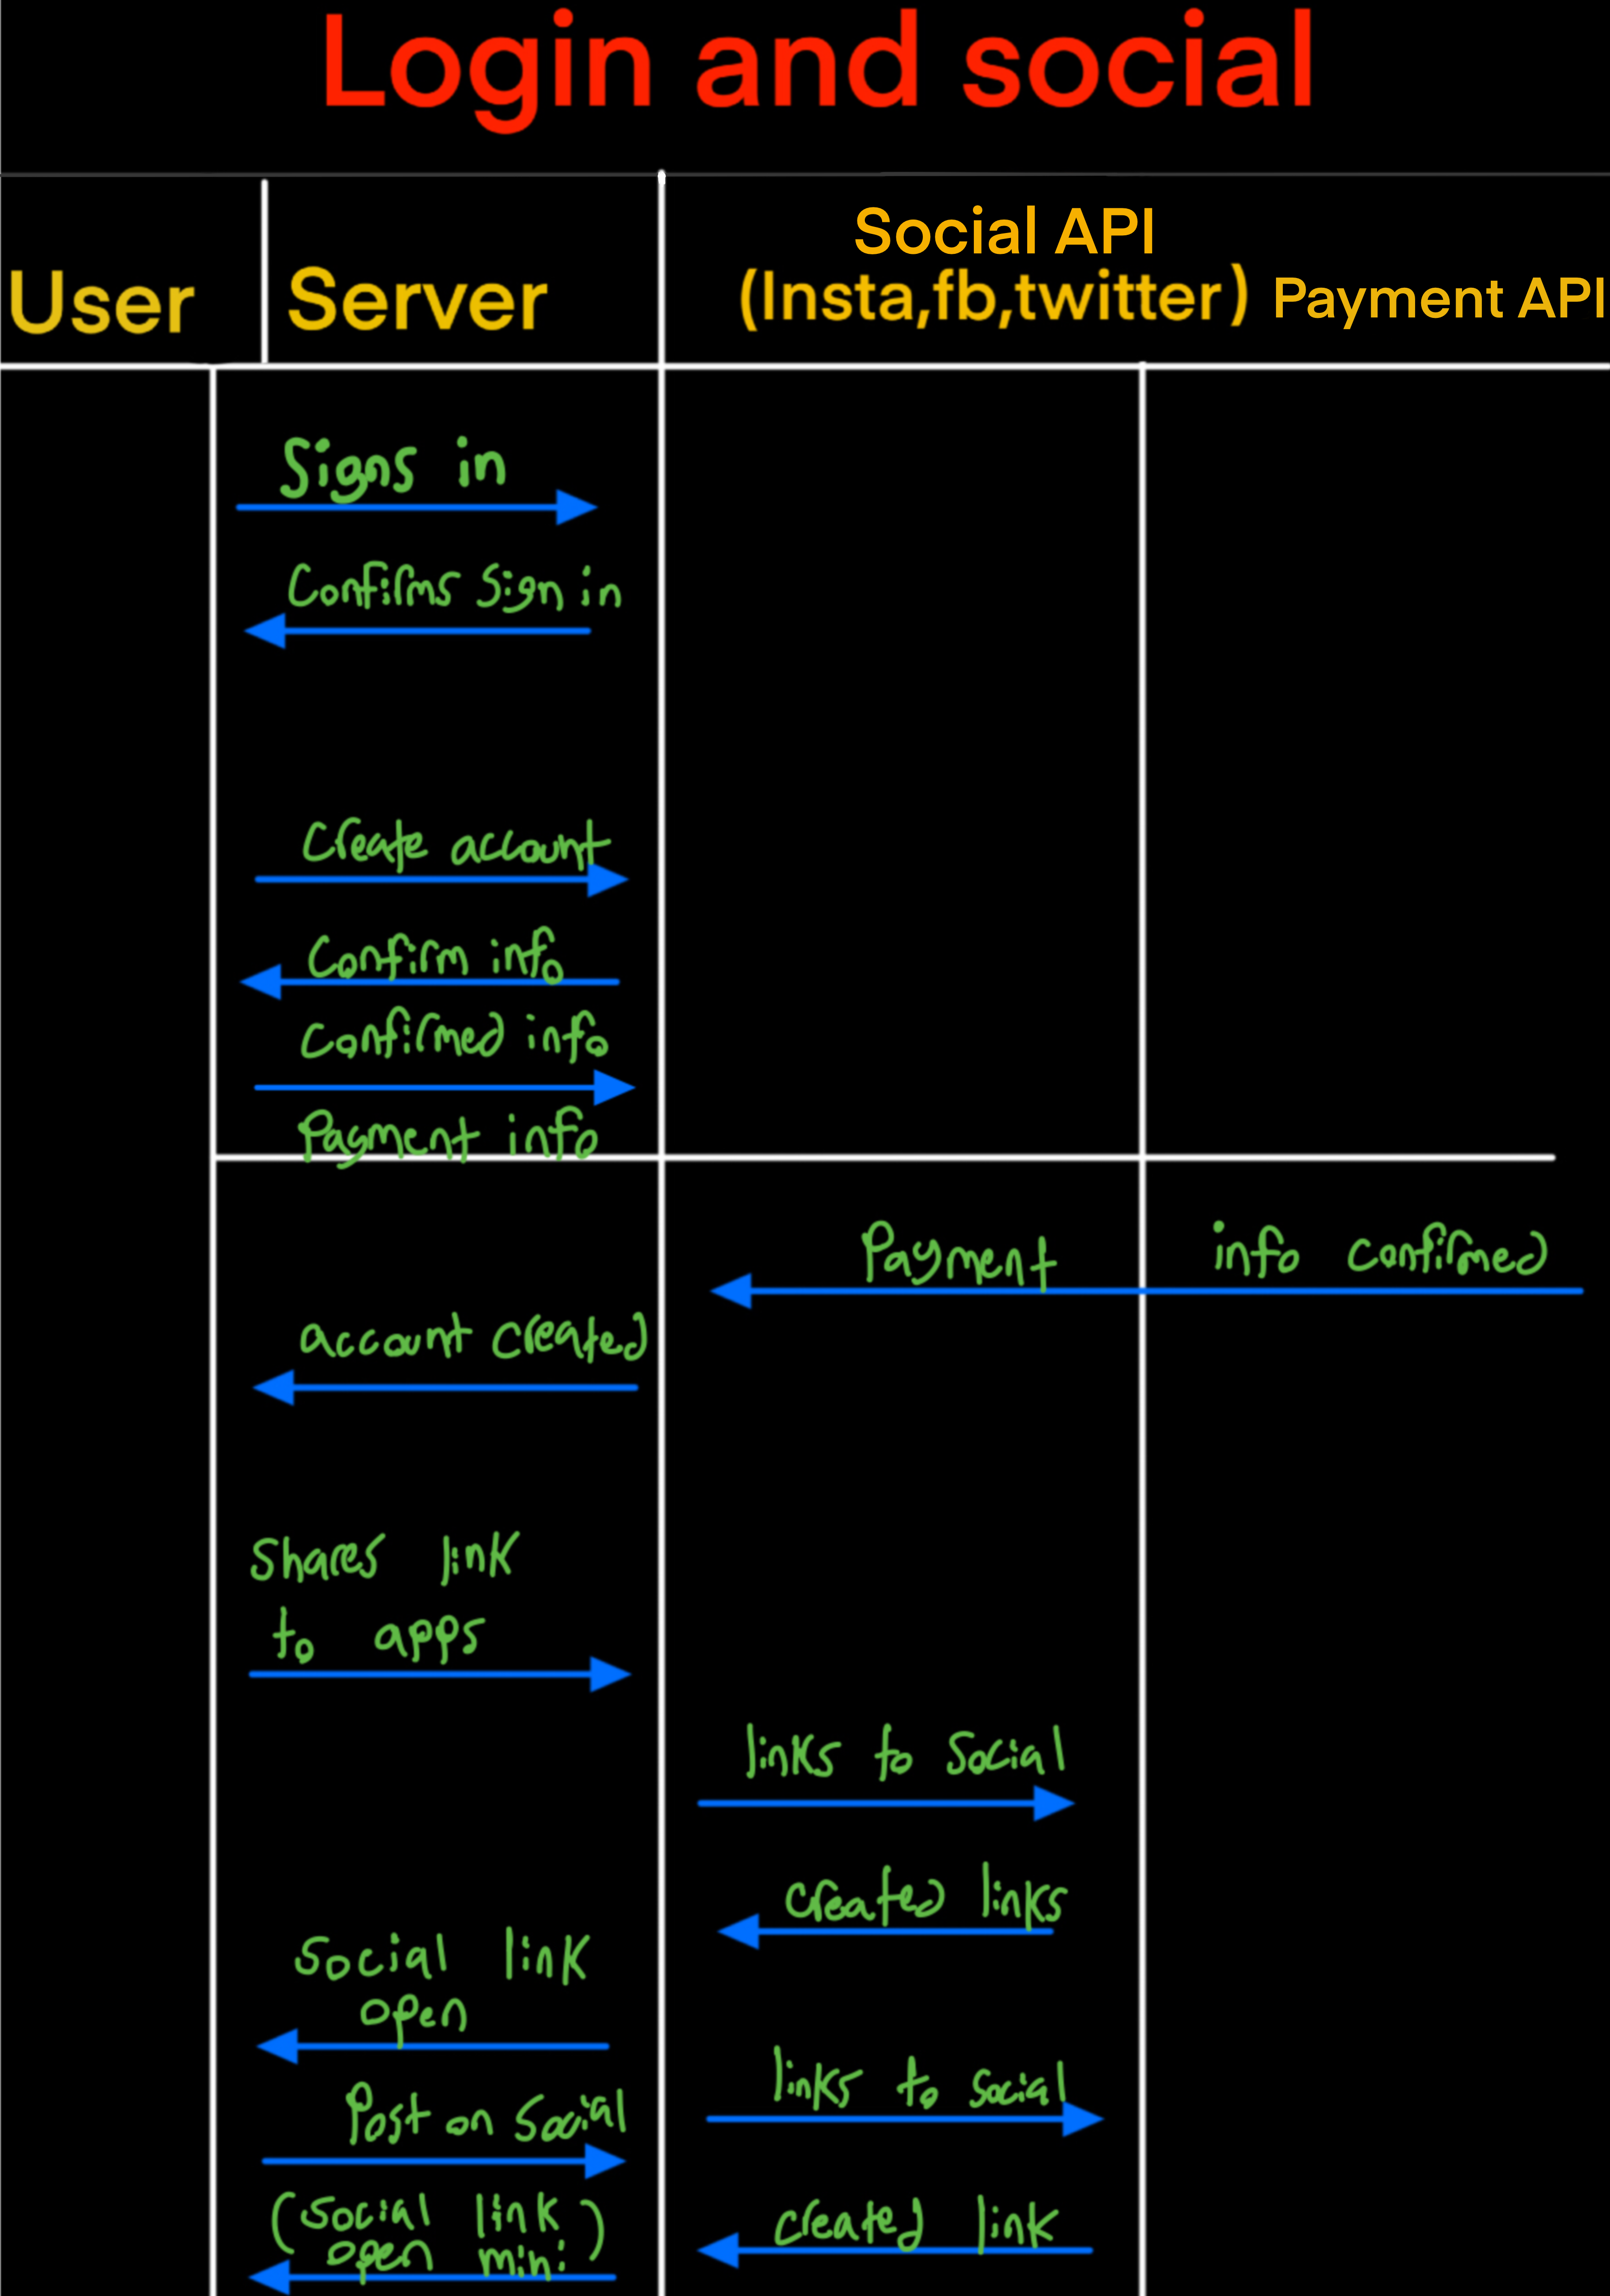 Login and social
Social API
User Server (Insta,fb,twitter) Payment API
Signs in
Confirms Sign in
Create account
Confirm info
Confirmed info
Payment info
Payment info confirmed
account created
Shares link
to apps
links to Social
created links
Social link
open
links to social
Post on Social
(Social link
open mini)
created link